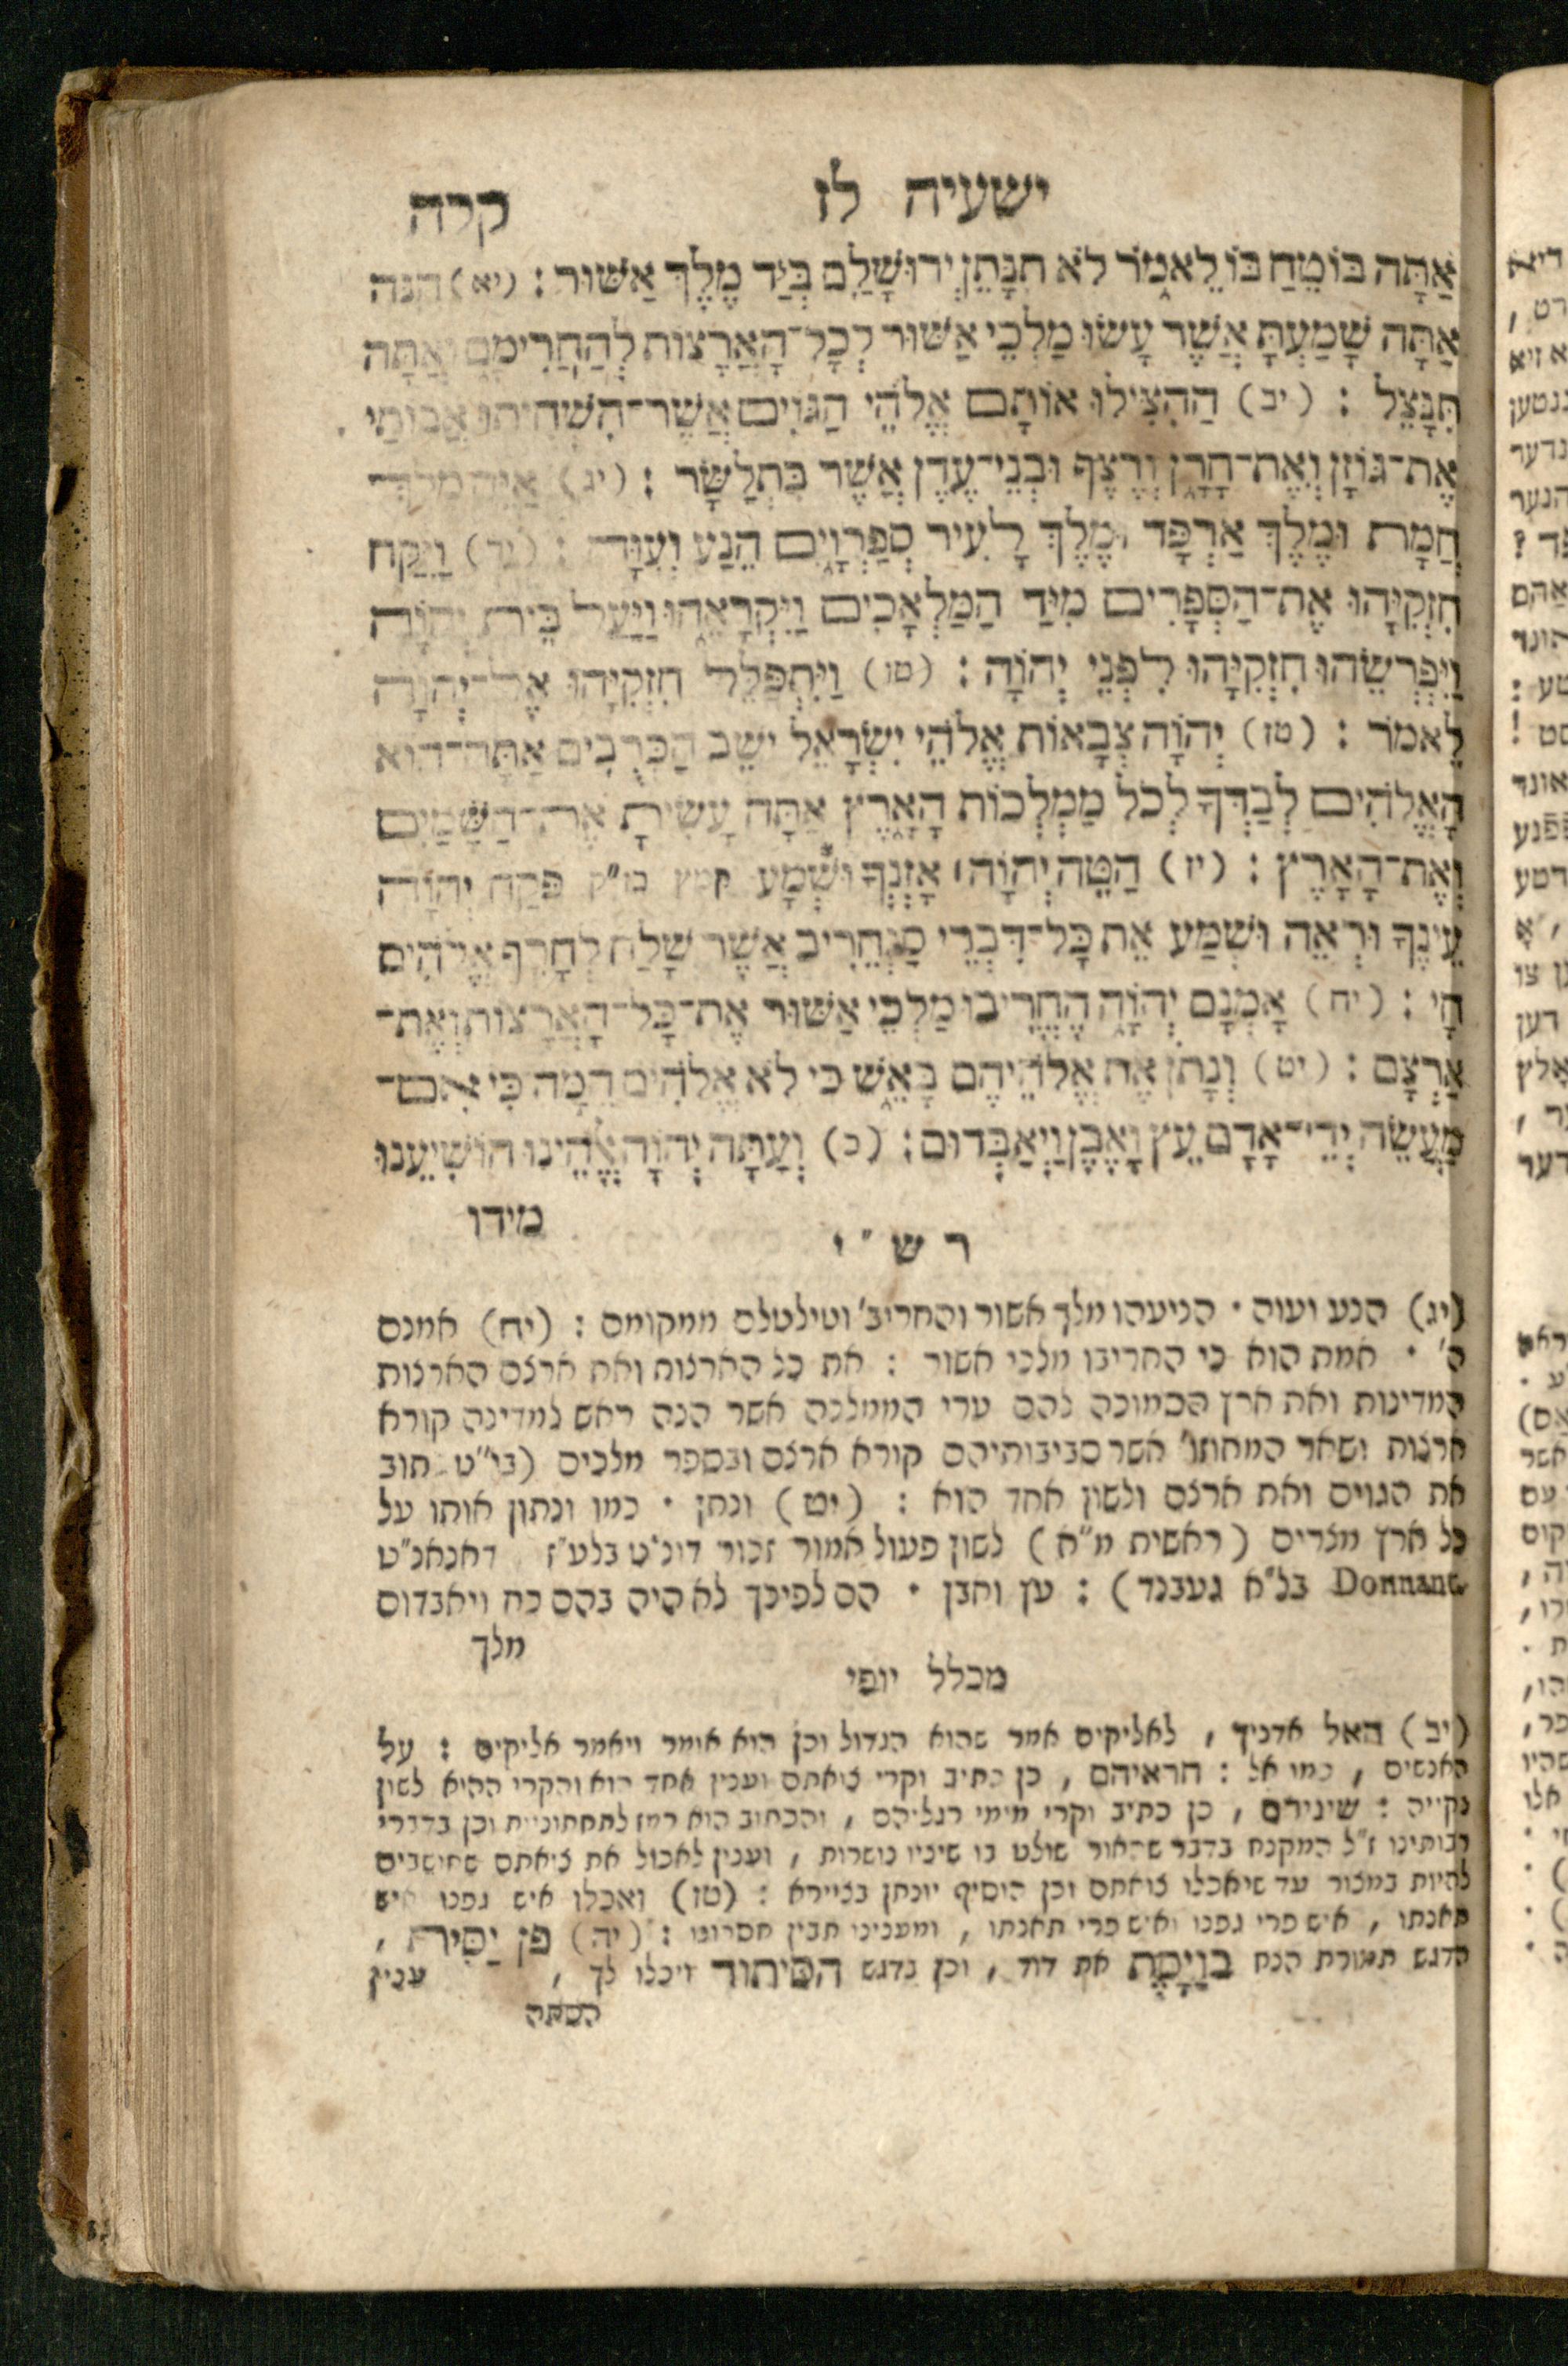 ישעיה לז קלה
אַתָּה בּוֹטֵחַ בּוֹ לֵאמֹר לֹא תִנָּתֵן יְרוּשָׁלִַם בְּיַד מֶלֶךְ אַשּׁוּר : (יא) הִנֵּה
אַתָּה שָׁמַעְתָּ אֲשֶׁר עָשׂוּ מַלְכֵי אַשּׁוּר לְכָל־הָאֲרָצוֹת לְהַחֲרִימָם וְאַתָּה
תִּנָּצֵל : (יב) הַהִצִּילוּ אוֹתָם אֱלֹהֵי הַגּוֹיִם אֲשֶׁר־הִשְׁחִיתוּ אֲבוֹתַי
אֶת־גּוֹזָן וְאֶת־חָרָן וְרֶצֶף וּבְנֵי־עֶדֶן אֲשֶׁר בִּתְלַשָּׂר : (יג) אַיֵּה מֶלֶךְ־
חֲמָת וּמֶלֶךְ אַרְפָּד וּמֶלֶךְ לָעִיר סְפַרְוָיִם הֵנַע וְעִוָּה : (יד) וַיִּקַּח
חִזְקִיָּהוּ אֶת־הַסְּפָרִים מִיַּד הַמַּלְאָכִים וַיִּקְרָאֵהוּ וַיַּעַל בֵּית יְהוָֹה
וַיִּפְרְשֵׂהוּ חִזְקִיָּהוּ לִפְנֵי יְהוָֹה : (טו) וַיִּתְפַּלֵּל חִזְקִיָּהוּ אֶל־יְהוָֹה
לֵאמֹר : (טז) יְהוָֹה צְבָאוֹת אֱלֹהֵי יִשְׂרָאֵל ישֵׁב הַכְּרֻבִים אַתָּה־הוּא
הָאֱלֹהִים לְבַדְּךָ לְכֹל מַמְלְכוֹת הָאָרֶץ אַתָּה עָשִׂיתָ אֶת־הַשָּׁמַיִם
וְאֶת־הָאָרֶץ : (יז) הַטֵּה יְהוָֹה׀ אָזְנְךָ וּשְׁמָע קמץ בז"ק פְּקַח יְהוָֹה
עֵינֶךָ וּרְאֵה וּשְׁמַע אֵת כָּל־דִּבְרֵי סַנְחֵרִיב אֲשֶׁר שָׁלַח לְחָרֵף אֱלֹהִים
חָי : (יח) אָמְנָם יְהוָֹה הֶחֱרִיבוּ מַלְכֵי אַשּׁוּר אֶת־כָּל־הָאֲרָצוֹת וְאֶת־
אַרְצָם : (יט) וְנָתֹן אֶת אֱלֹהֵיהֶם בָּאֵשׁ כִּי לֹא אֱלֹהִים הֵמָּה כִּי אִם־
מַעֲשֵׂה יְדֵי־אָדָם עֵץ וָאֶבֶן וַיְאַבְּדוּם : (כ) וְעַתָּה יְהוָֹה אֱלֹהֵינוּ הוֹשִׁיעֵנוּ
מידו
ר ש " י
(יג) הנע ועוה • הניעהו מלך אשור והחריב' וטילטלם ממקומם : (יח) אמנם
ה' • אמת הוא כי החריבו מלכי אשור : את כל הארצות ואת ארצם הארצות
המדינות ואת ארץ הסמוכה להם ערי הממלכה אשר הנה ראש למדינה קורא
ארצות ושאר המחוזו' אשר סביבותיהם קורא ארצם ובספר מלכים (ב י"ט כתוב
את הגוים ואת ארצם ולשון אחד הוא : (יט) ונתן • כמו ונתון אותו על
כל ארץ מצרים (ראשית מ"א) לשון פעול אמור זכור דונ"ט בלע"ז דאנאנ"ט
Donnant בל"א געבנד) : עץ ואבן • הם לפיכך לא היה בהם כח ויאבדום
מלך
מכלל יופי
(יב) האל אדניך , לאליקים אמר שהוא הגדול וכן הוא אומר ויאמר אליקים : על
האנשים , כמו אל : חראיהם , כן כתיב וקרי צואתם וענין אחד הוא והקרי ההיא לשון
נקייה : שיניהם , כן כתיב וקרי מימי רגליהם , והכתוב הוא רמז לתחתוניית וכן בדברי
רבותינו ז"ל המקנח בדבר שהאור שולט בו שיניו נושרות , וענין לאכול את צואתם שחושבים
להיות במצור עד שיאכלו צואתם וכן הוסיף יונתן בציירא : (טז) ואכלו איש גפנו איש
תאנתו , איש פרי גפנו ואיש פרי תאנתו , ומענינו תבין חסרונו : (יח) פֶּן יַסִּית ,
הדגש תמורת הנח בוַיָּסֶת את דוד , וכן נדגש הסיתוך ויכלו לך , ענין
הסתה